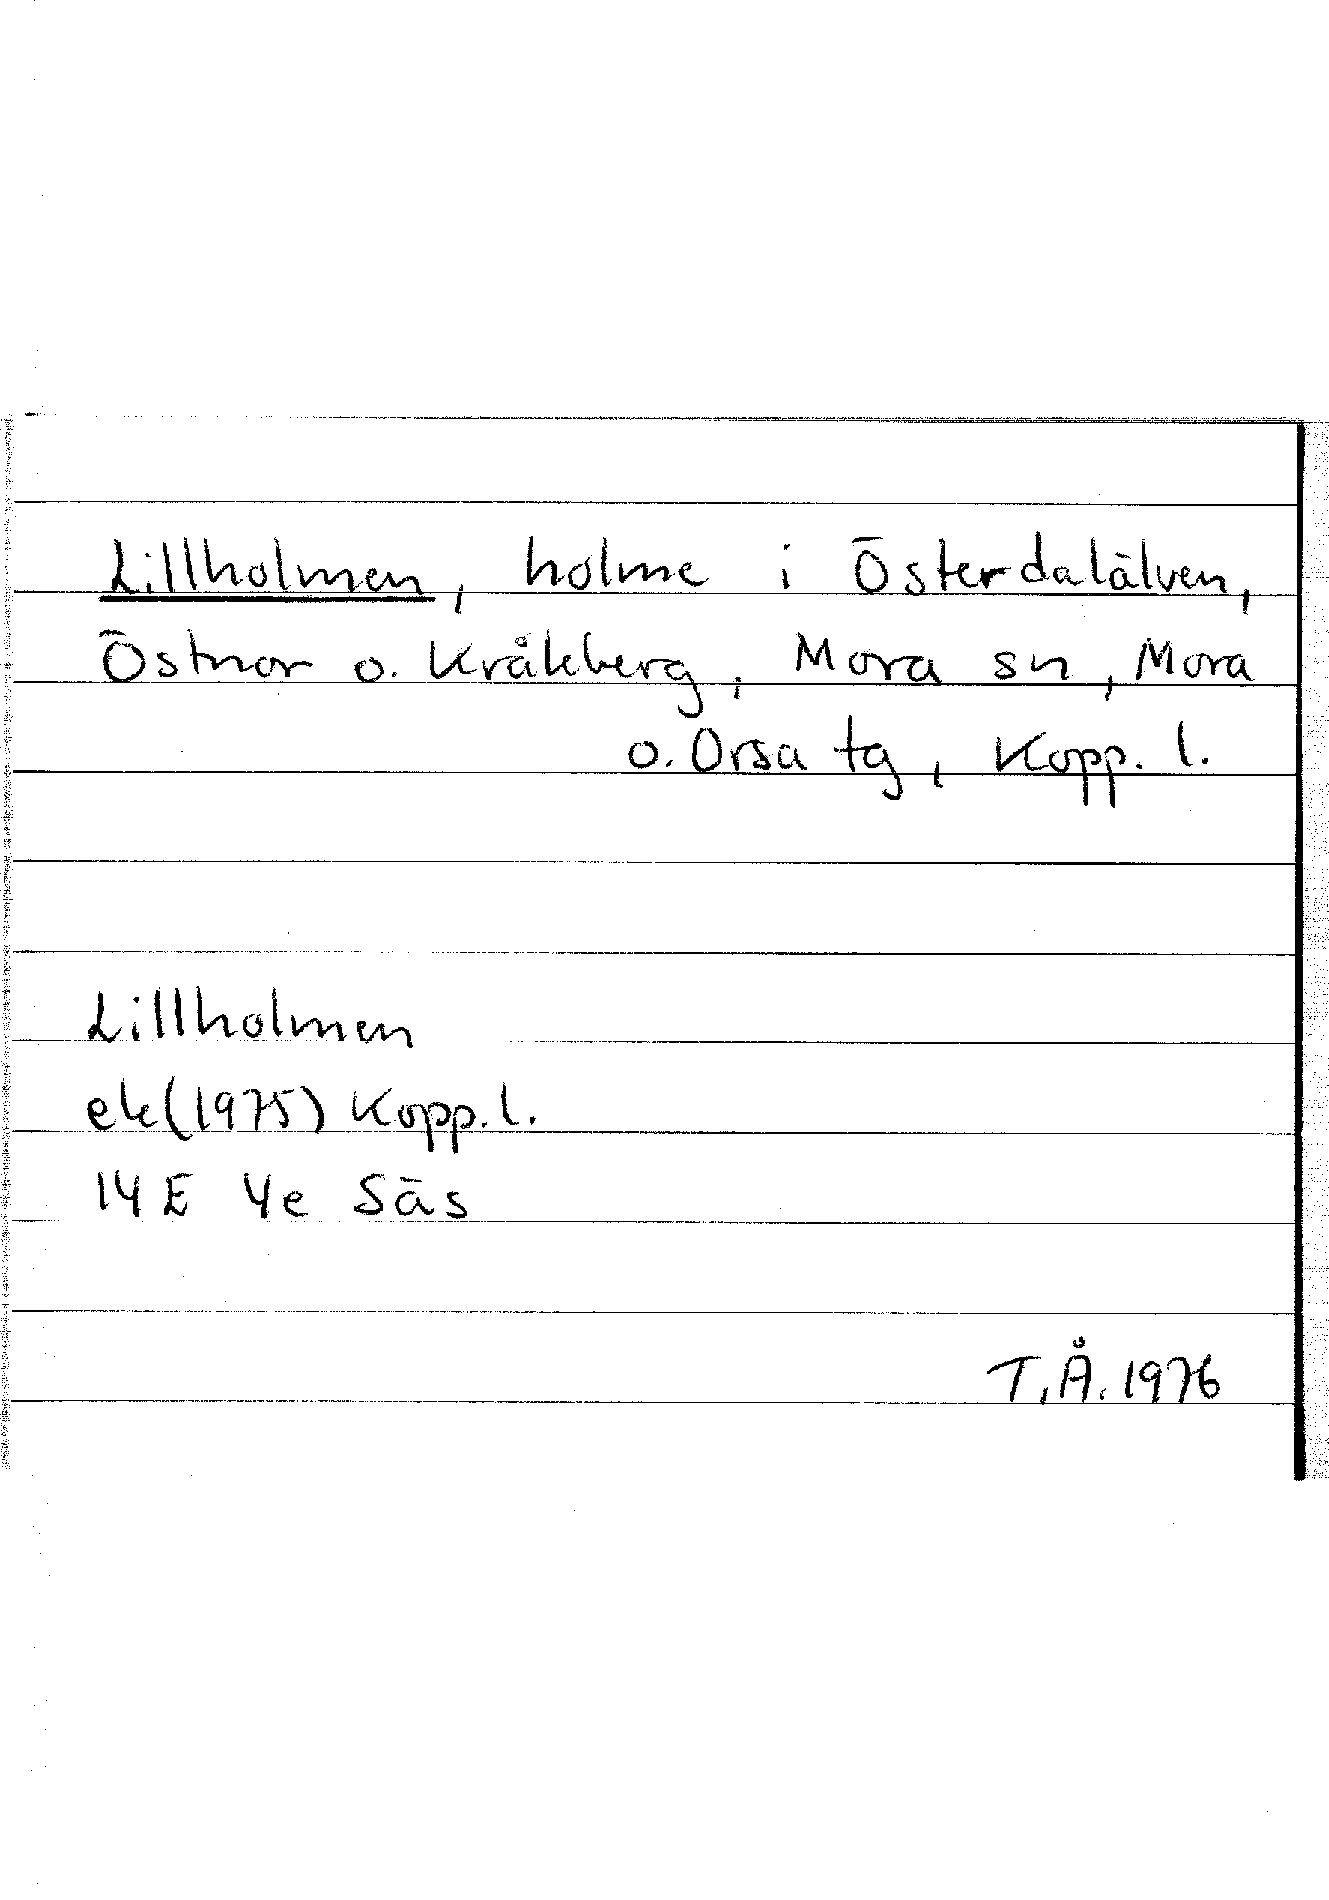 Lillholmen, holme i Österdalälven,
Östnor o. Kråkberg, Mora sn, Mora
o. Orsa tg, Kopp. l.
Lillholmen
ek (1975) Kopp. l.
14 E 4e Säs
T.Å. 1976